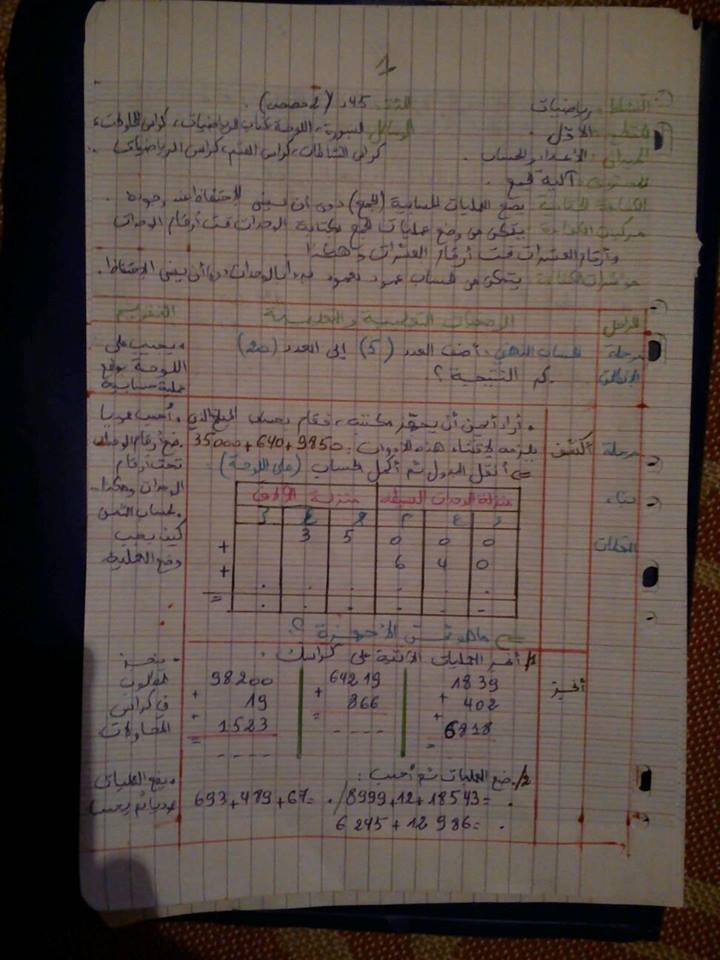 1
النشاط: رياضيات المدة: 45د (2 حصص).
المقطع: الأول. الوسائل: السبورة، اللوحة، كتاب الرياضيات، كراس المحاولات،
الميدان: الأعداد والحساب. كراس النشاطات، كراس القسم، كراس الرياضيات.
المحتوى: آلية الجمع.
الكفاءة الختامية: يضع العمليات الحسابية (الجمع) دون أن ينسى الاحتفاظ عند وجوده.
مركبة الكفاءة: يتمكن من وضع عمليات الجمع بكتابة الوحدات تحت أرقام الوحدات
وأرقام العشرات تحت أرقام العشرات وهكذا
مؤشرات الكفاءة: يتمكن من الحساب عمود بعمود بدءا بالوحدات دون أن ينسى الاحتفاظ.
المراحل الوضعيات التعلمية والتعليمية التقويم
مرحلة الحساب الذهني: أضف العدد (5) إلى العدد (20) • يجيب على
الانطلاق كم النتيجة؟ اللوحة بوضع
عملية حسابية
• أراد أيمن أن يجهز مكتبه، فقام بحساب المبلغ الذي • أحسب عموديا
مرحلة أكتشف يلزمه لاقتناء هذه الأدوات: 9850+640+35000 • ضع أرقام الوحدات
⇐ أنقل الجدول ثم أكمل الحساب (على اللوحة) تحت أرقام
بناء منزلة الوحدات البسيطة منزلة الآلاف الوحدات وهكذا
التعلمات
3 5 0 0 0 كيف يجب
+ 6 4 0 وضع العملية
+ . . . . .
= . . . . . -
⇐ ماهو ثمن الأجهزة؟
أنجز 1/ أنجز العمليات الآتية على كراسك. • ينجز
1839 64219 98200 المطلوب
+ 402 + 866 + 19 في كراس
+ 6818 = - - - - + 1523 المحاولات
= = - - - -
2/ ضع العمليات ثم أحسب: • يضع العمليات
8999+12+18543= . / 693+479+67= . عموديا ثم يحسب
6 245+12 986= .